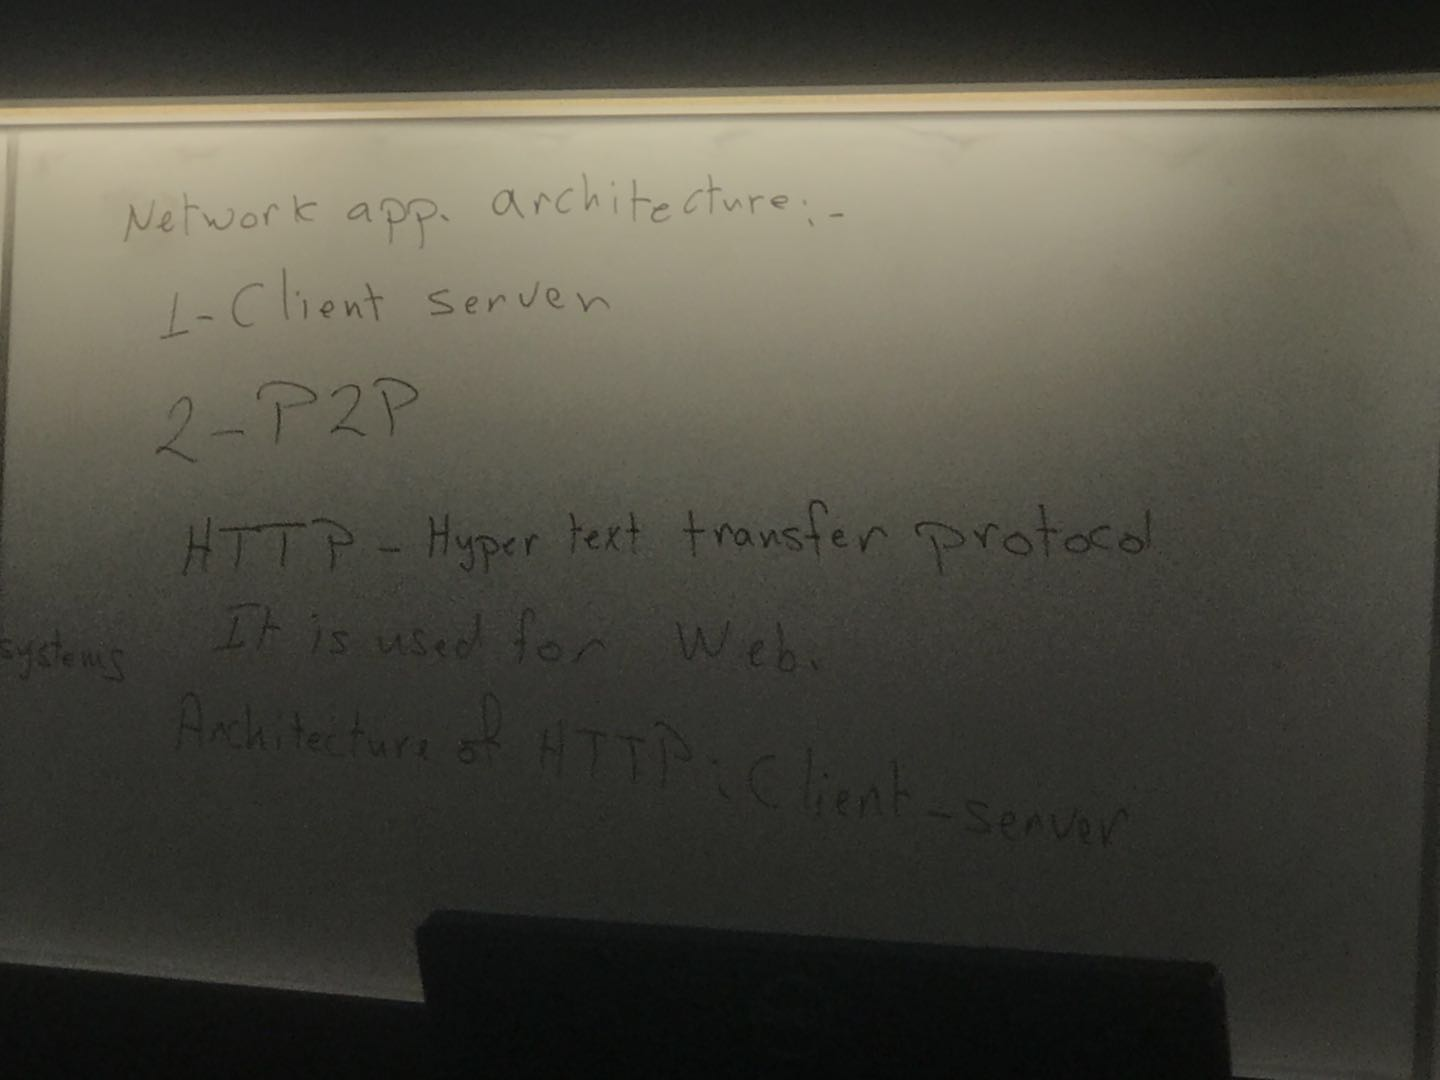 Network app. architecture:-
1-Client server
2-P2P
HTTP - Hyper text transfer protocol
It is used for Web.
systems
Architecture of HTTP: Client-server